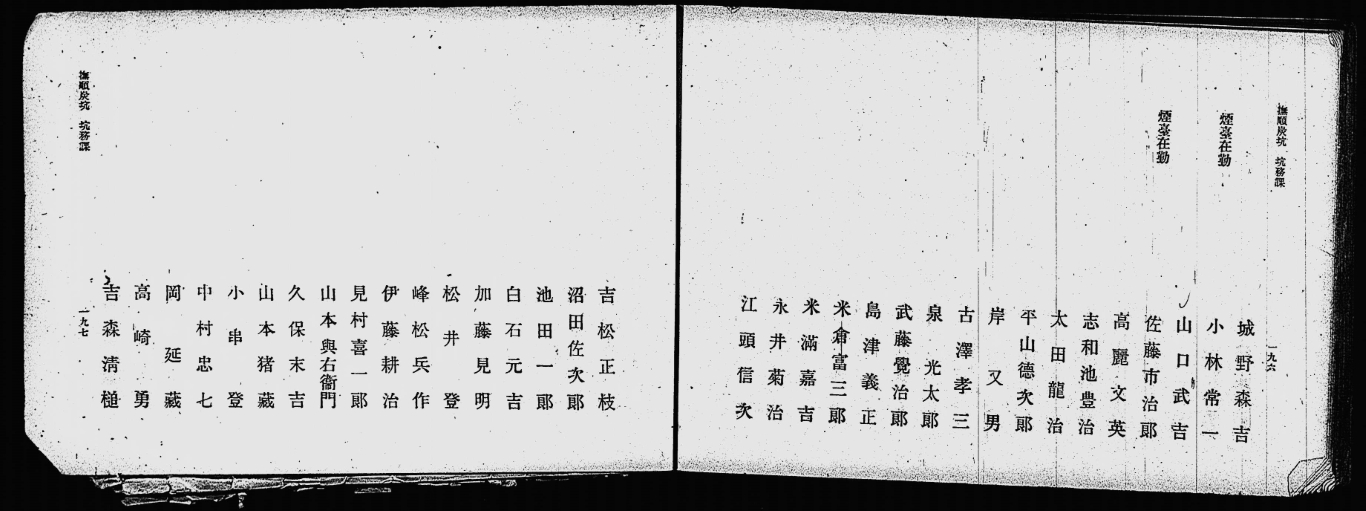 撫順炭坑 坑務課
一九六
城野森吉
煙臺在勤 小林常一
山口武吉
煙臺在勤 佐藤市治郎
高麗文英
志和池豊治
太田龍治
平山德次郎
岸又男
古澤孝三
泉光太郎
武藤覺治郎
島津義正
米倉富三郎
米滿嘉吉
永井菊治
江頭信次
吉松正枝
沼田佐次郎
池田一郎
白石元吉
加藤見明
松井登
峰松兵作
伊藤耕治
見村喜一郎
山本與右衞門
久保末吉
山本猪藏
小串登
中村忠七
岡延藏
高崎勇
吉森淸槌
撫順炭坑 坑務課
一九七